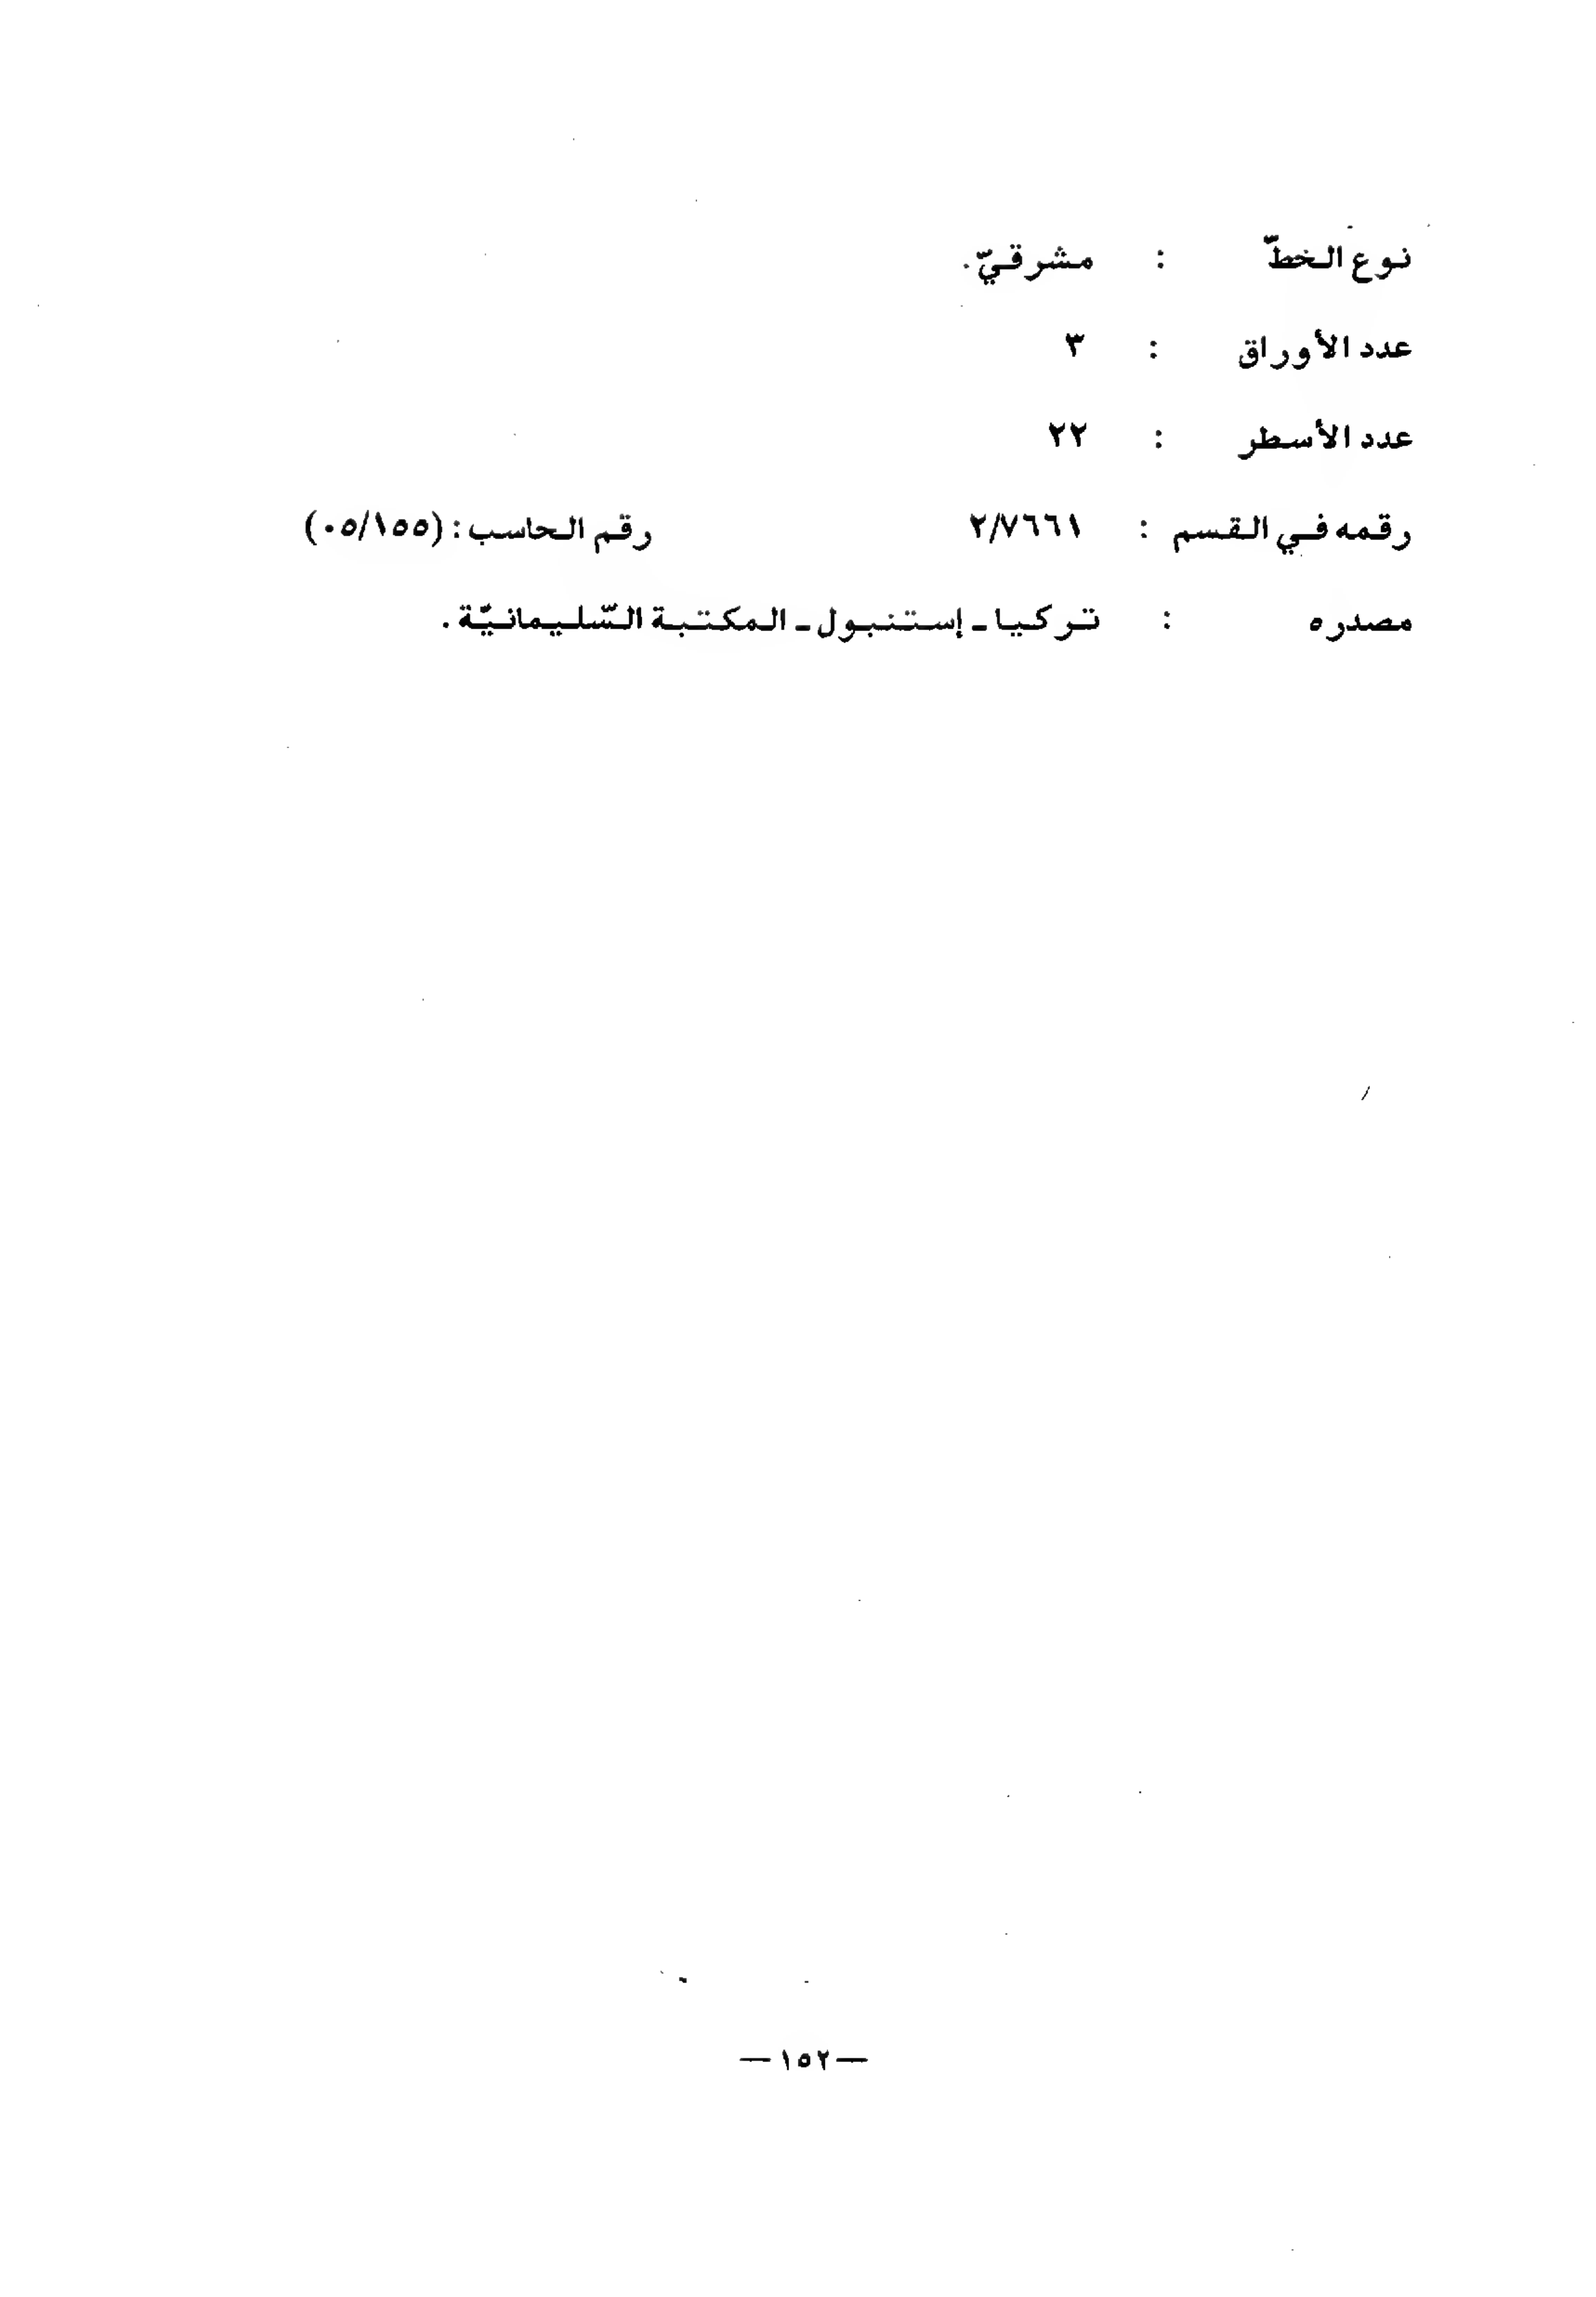 نوع الخطّ : مشرقيّ.
عدد الأوراق : ٣
عدد الأسطر : ٢٢
رقمه في القسم : ٢/٧٦٦١ رقم الحاسب : (٠٥/١٥٥)
مصدره : تركيا ـ إستنبول ـ المكتبة السّليمانيّة .
— ١٥٢ —